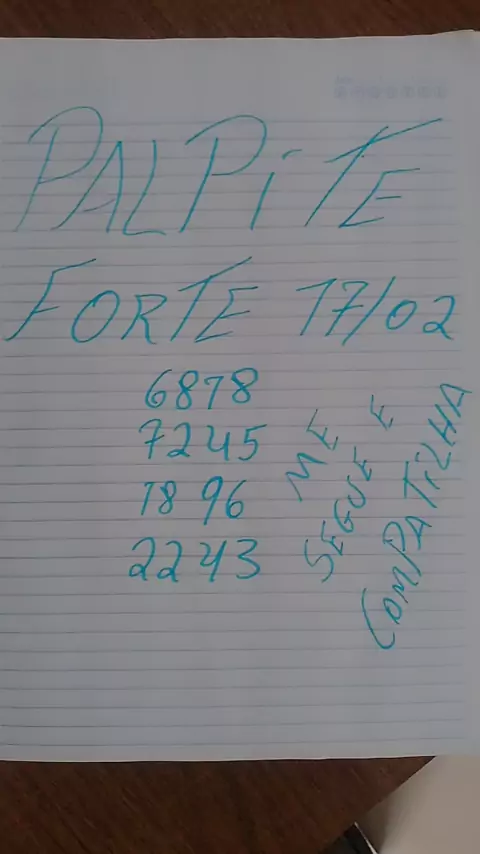 PALPiTE
FORTE 17/02
6878
7245
1896
2243
ME
SEGUE E
COMPATiLHA